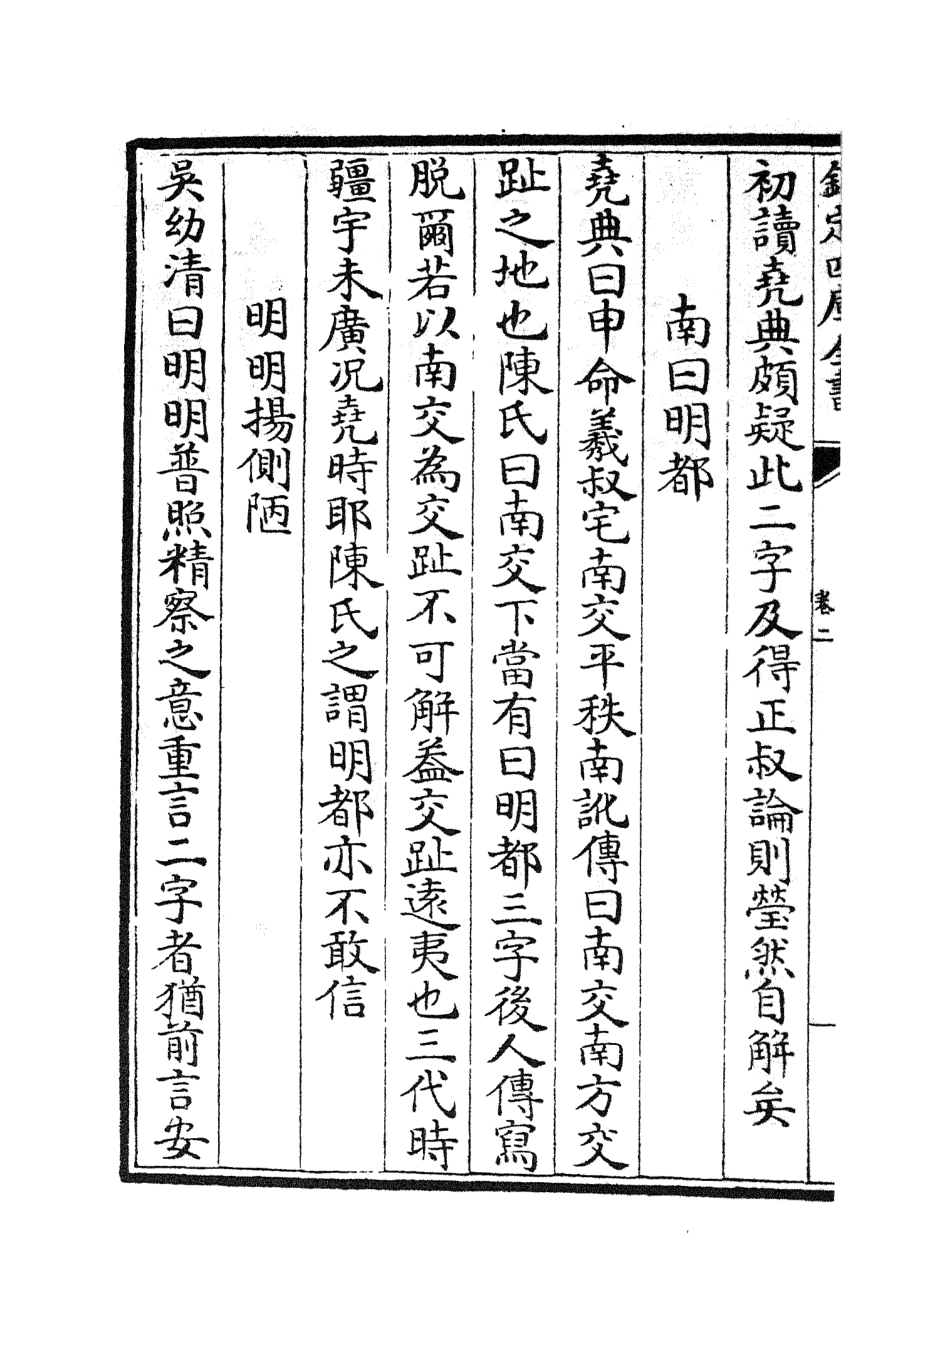 欽定四庫全書
卷二
初讀堯典頗疑此二字及得正叔論則瑩然自解矣
南曰明都
堯典曰申命羲叔宅南交平秩南訛傳曰南交南方交
趾之地也陳氏曰南交下當有曰明都三字後人傳寫
脱爾若以南交為交趾不可解葢交趾逺夷也三代時
疆宇未廣况堯時耶陳氏之謂明都亦不敢信
明明揚側陋
吳幼清曰明明普照精察之意重言二字者猶前言安